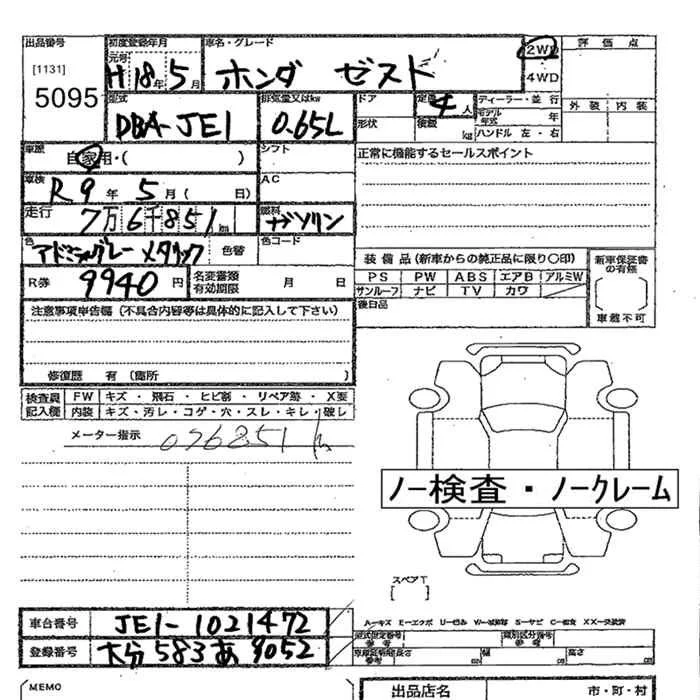 出品番号 初度登録年月 車名・グレード 2WD 評価点
[1131] 元号 H18年5月 ホンダ ゼスト 4WD
5095 型式 排気量又はkw ドア 定員 4人 ディーラー・並行 外装 内装
DBA-JE1 0.65L 形状 積載 kg モデル年式 年
ハンドル 左・右
車歴 自家用・( ) シフト 正常に機能するセールスポイント
車検 R9年5月( 日) AC
走行 7万6千851km 燃料 ガソリン
色 色替 色コード
装備品(新車からの純正品に限り〇印) 新車保証書の有無
R券 9940円 名変書類有効期限 月 日 PS PW ABS エアB アルミW
サンルーフ ナビ TV カワ
後日品 車載不可
注意事項申告欄(不具合内容等は具体的に記入して下さい)
修復歴 有(箇所 )
検査員記入欄 FW キズ・飛石・ヒビ割・リペア跡・X要
内装 キズ・汚レ・コゲ・穴・スレ・キレ・破レ
メーター指示 076851km
ノー検査・ノークレーム
スペアT
[ ]
車台番号 JE1-1021472
登録番号 大分 583 あ 9052
A=キズ E=エクボ
型式指定番号 参考 類別区分番号 参考
車庫証明 参考 長さ cm 幅 cm 高さ cm
MEMO 出品店名 市・町・村